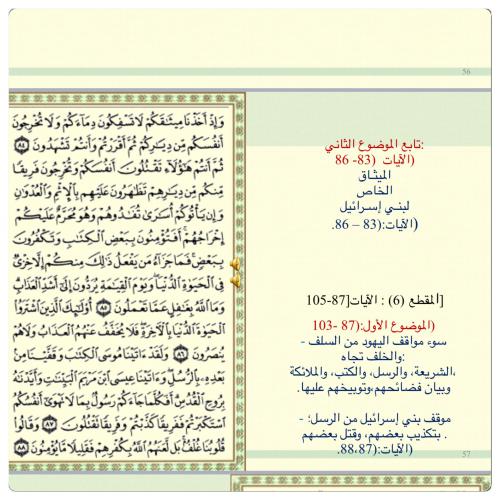 56
وَإِذْ أَخَذْنَا مِيثَٰقَكُمْ لَا تَسْفِكُونَ دِمَآءَكُمْ وَلَا تُخْرِجُونَ
أَنفُسَكُم مِّن دِيَٰرِكُمْ ثُمَّ أَقْرَرْتُمْ وَأَنتُمْ تَشْهَدُونَ ٨٤
ثُمَّ أَنتُمْ هَٰٓؤُلَآءِ تَقْتُلُونَ أَنفُسَكُمْ وَتُخْرِجُونَ فَرِيقًا
مِّنكُم مِّن دِيَٰرِهِمْ تَظَٰهَرُونَ عَلَيْهِم بِٱلْإِثْمِ وَٱلْعُدْوَٰنِ
وَإِن يَأْتُوكُمْ أُسَٰرَىٰ تُفَٰدُوهُمْ وَهُوَ مُحَرَّمٌ عَلَيْكُمْ
إِخْرَاجُهُمْ أَفَتُؤْمِنُونَ بِبَعْضِ ٱلْكِتَٰبِ وَتَكْفُرُونَ
بِبَعْضٍ فَمَا جَزَآءُ مَن يَفْعَلُ ذَٰلِكَ مِنكُمْ إِلَّا خِزْىٌ
فِى ٱلْحَيَوٰةِ ٱلدُّنْيَا وَيَوْمَ ٱلْقِيَٰمَةِ يُرَدُّونَ إِلَىٰٓ أَشَدِّ ٱلْعَذَابِ
وَمَا ٱللَّهُ بِغَٰفِلٍ عَمَّا تَعْمَلُونَ ٨٥ أُو۟لَٰٓئِكَ ٱلَّذِينَ ٱشْتَرَوُا۟
ٱلْحَيَوٰةَ ٱلدُّنْيَا بِٱلْءَاخِرَةِ فَلَا يُخَفَّفُ عَنْهُمُ ٱلْعَذَابُ وَلَا هُمْ
يُنصَرُونَ ٨٦ وَلَقَدْ ءَاتَيْنَا مُوسَى ٱلْكِتَٰبَ وَقَفَّيْنَا مِنۢ
بَعْدِهِۦ بِٱلرُّسُلِ وَءَاتَيْنَا عِيسَى ٱبْنَ مَرْيَمَ ٱلْبَيِّنَٰتِ وَأَيَّدْنَٰهُ
بِرُوحِ ٱلْقُدُسِ أَفَكُلَّمَا جَآءَكُمْ رَسُولٌۢ بِمَا لَا تَهْوَىٰٓ أَنفُسُكُمُ
ٱسْتَكْبَرْتُمْ فَفَرِيقًا كَذَّبْتُمْ وَفَرِيقًا تَقْتُلُونَ ٨٧ وَقَالُوا۟
قُلُوبُنَا غُلْفٌۢ بَل لَّعَنَهُمُ ٱللَّهُ بِكُفْرِهِمْ فَقَلِيلًا مَّا يُؤْمِنُونَ ٨٨
:تابع الموضوع الثاني
(الآيات (83- 86
الميثاق
الخاص
لبني إسرائيل
(الآيات:(83 – 86.
[المقطع (6) : الآيات[87-105
(الموضوع الأول:(87 -103
- سوء مواقف اليهود من السلف
والخلف تجاه:
،الشريعة، والرسل، والكتب، والملائكة
وبيان فضائحهم،وتوبيخهم عليها.
- موقف بني إسرائيل من الرسل؛
. بتكذيب بعضهم، وقتل بعضهم
(الآيات:(88،87.
57